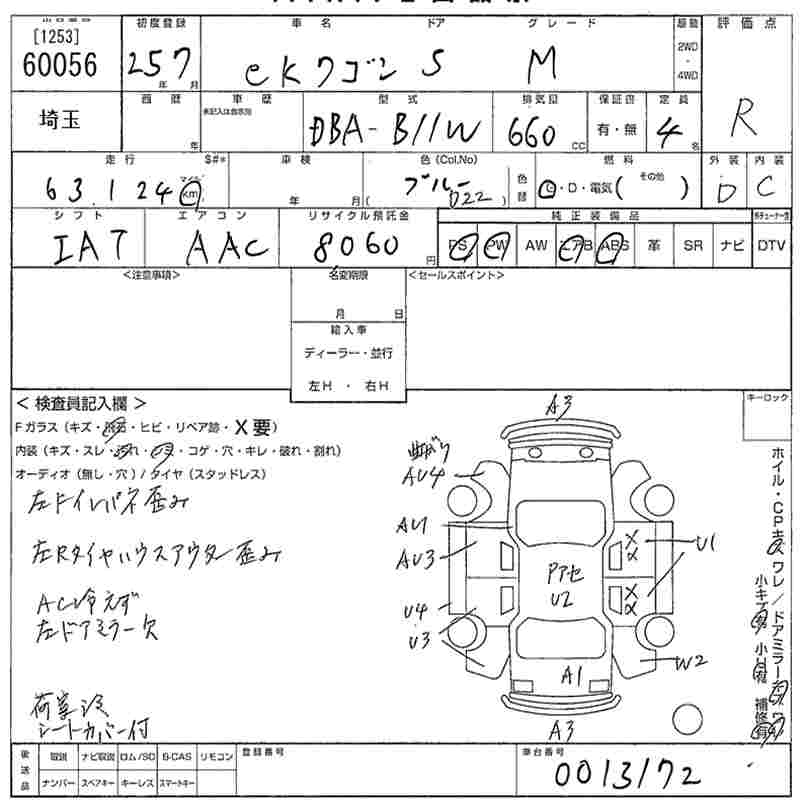 [1253]
60056
初度登録
257
年 月
車名 ドア グレード
eKワゴン 5 M
駆動
2WD
・
4WD
評価点
R
埼玉
西暦
年
車歴
型式
DBA-B11W
排気量
660 CC
保証書
有・無
定員
4 名
走行 S#*
63,124 マイル km
車検
年 月
色(Col,No)
ブルー
( D22 )
色替
燃料
G・D・電気( その他 )
外装
D
内装
C
シフト
IAT
エアコン
AAC
リサイクル預託金
8060 円
純正装備品
PS PW AW エアB ABS 革 SR ナビ DTV
<注意事項>
名変期限
月 日
輸入車
ディーラー・並行
左H ・ 右H
<セールスポイント>
< 検査員記入欄 >
Fガラス(キズ・飛石・ヒビ・リペア跡・X要)
内装(キズ・スレ・汚れ・・コゲ・穴・キレ・破れ・割れ)
オーディオ(無し・穴)/タイヤ(スタッドレス)
左Fインパネ歪み
左Rタイヤハウスアウター歪み
AC冷えず
左ドアミラー欠
シートカバー付
キーロック
A3
曲がり
AU4
AU1
AU3
U4
U3
X
X
X
X
U1
Pアセ
U2
A1
W2
A3
ホイル・CPキズ ワレ/ドアミラーキズ ワレ
小キズ有 小凹有 補修有
後送品
取説 ナビ取説 ロム/SD B-CAS リモコン
ナンバー スペアキー キーレス スマートキー
登録番号
車台番号
0013172